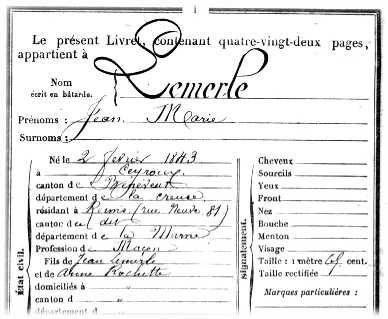 Le présent Livret, contenant quatre-vingt-deux pages,
appartient à
Nom Lemerle
écrit en bâtarde.
Prénoms : Jean Marie
Surnoms :
État civil.
Né le 2 février 1843
à Ceyroux
canton de Bénévent
département de la Creuse
résidant à Reims (rue Neuve 81)
canton de dit
département de la Marne
Profession de Maçon
Fils de Jean Lemerle
et de Anne Rochette
domiciliés à "
canton d "
département d
Signalement.
Cheveux
Sourcils
Yeux
Front
Nez
Bouche
Menton
Visage
Taille : 1 mètre cent.
Taille rectifiée
Marques particulières :